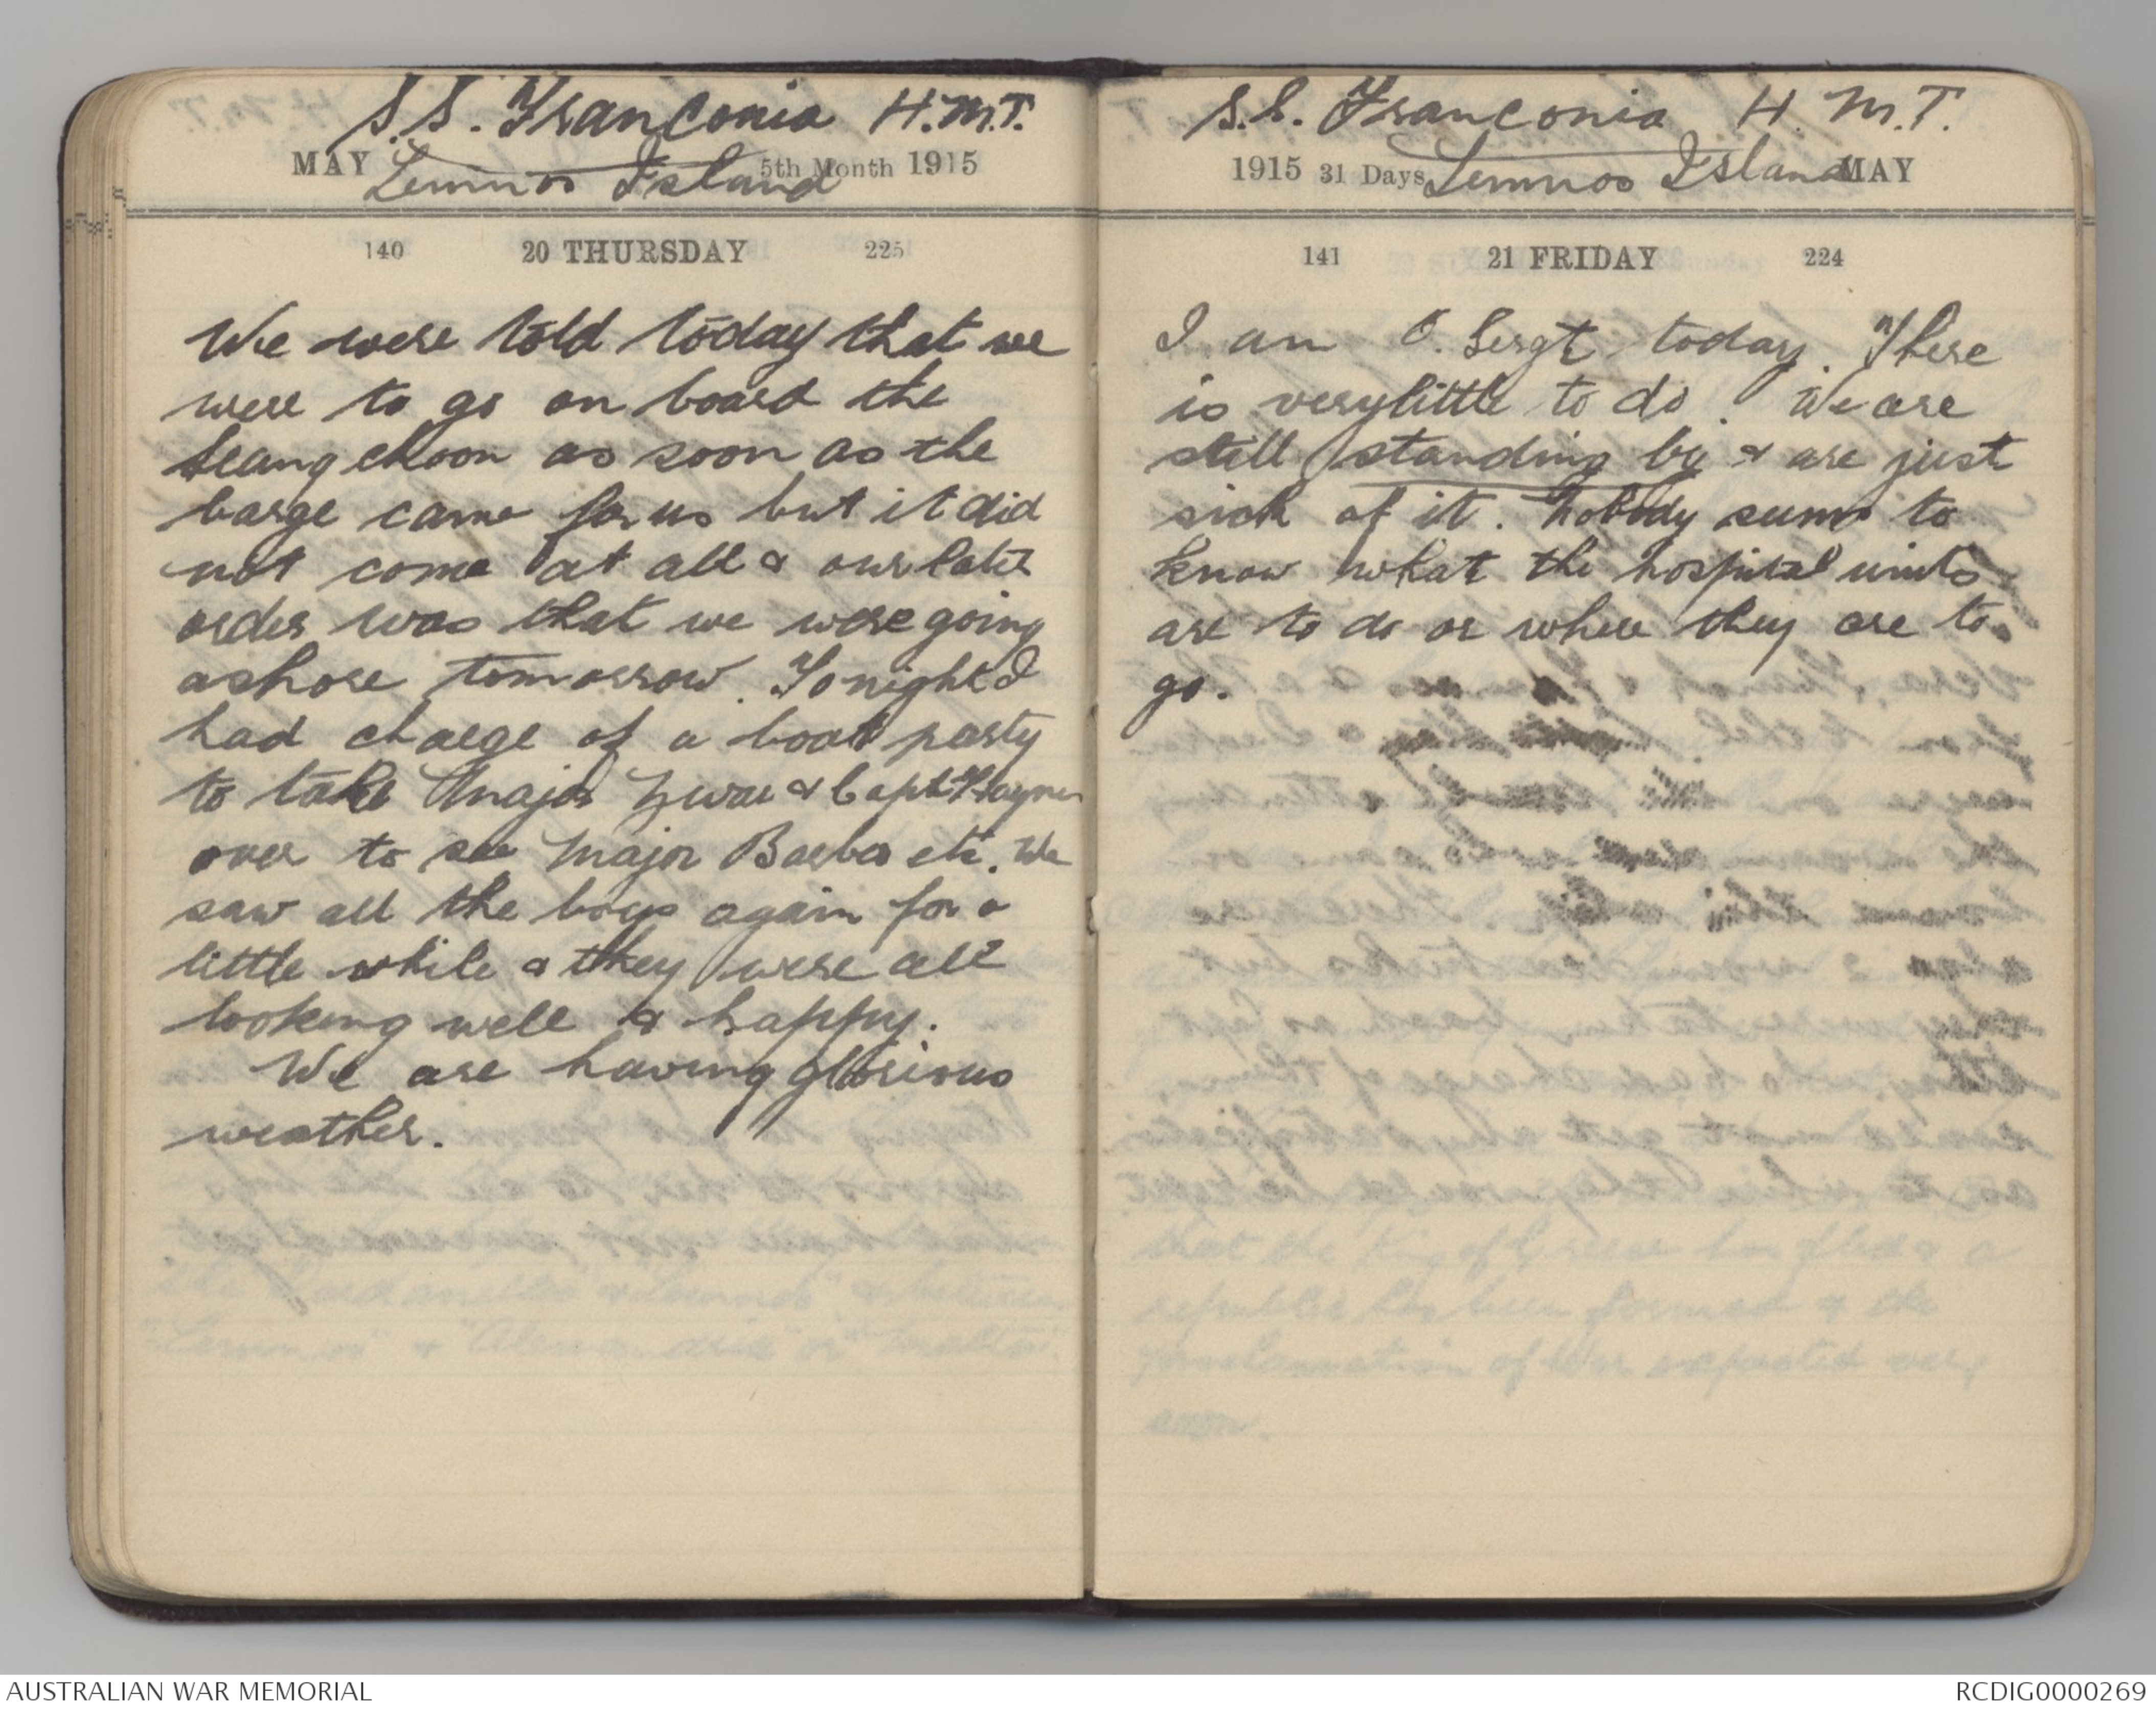 S.S. Franconia H.M.T.
MAY Lemnos Island 5th Month 1915
140 20 THURSDAY 225
We were told today that we
were to go on board the
Seang choon as soon as the
barge came for us but it did
not come at all & our latest
order was that we were going
ashore tomorrow. Tonight I
had charge of a boat party
to take Major & Capt Haynes
over to see Major Barber etc. We
saw all the boys again for a
little while & they were all
looking well & happy.
We are having glorious
weather.
S.S. Franconia H.M.T.
1915 31 Days Lemnos Island MAY
141 21 FRIDAY 224
I am O. Sergt today. There
is very little to do. We are
still standing by & are just
sick of it. Nobody seems to
know what the hospital units
are to do or where they are to
go.
AUSTRALIAN WAR MEMORIAL
RCDIG0000269